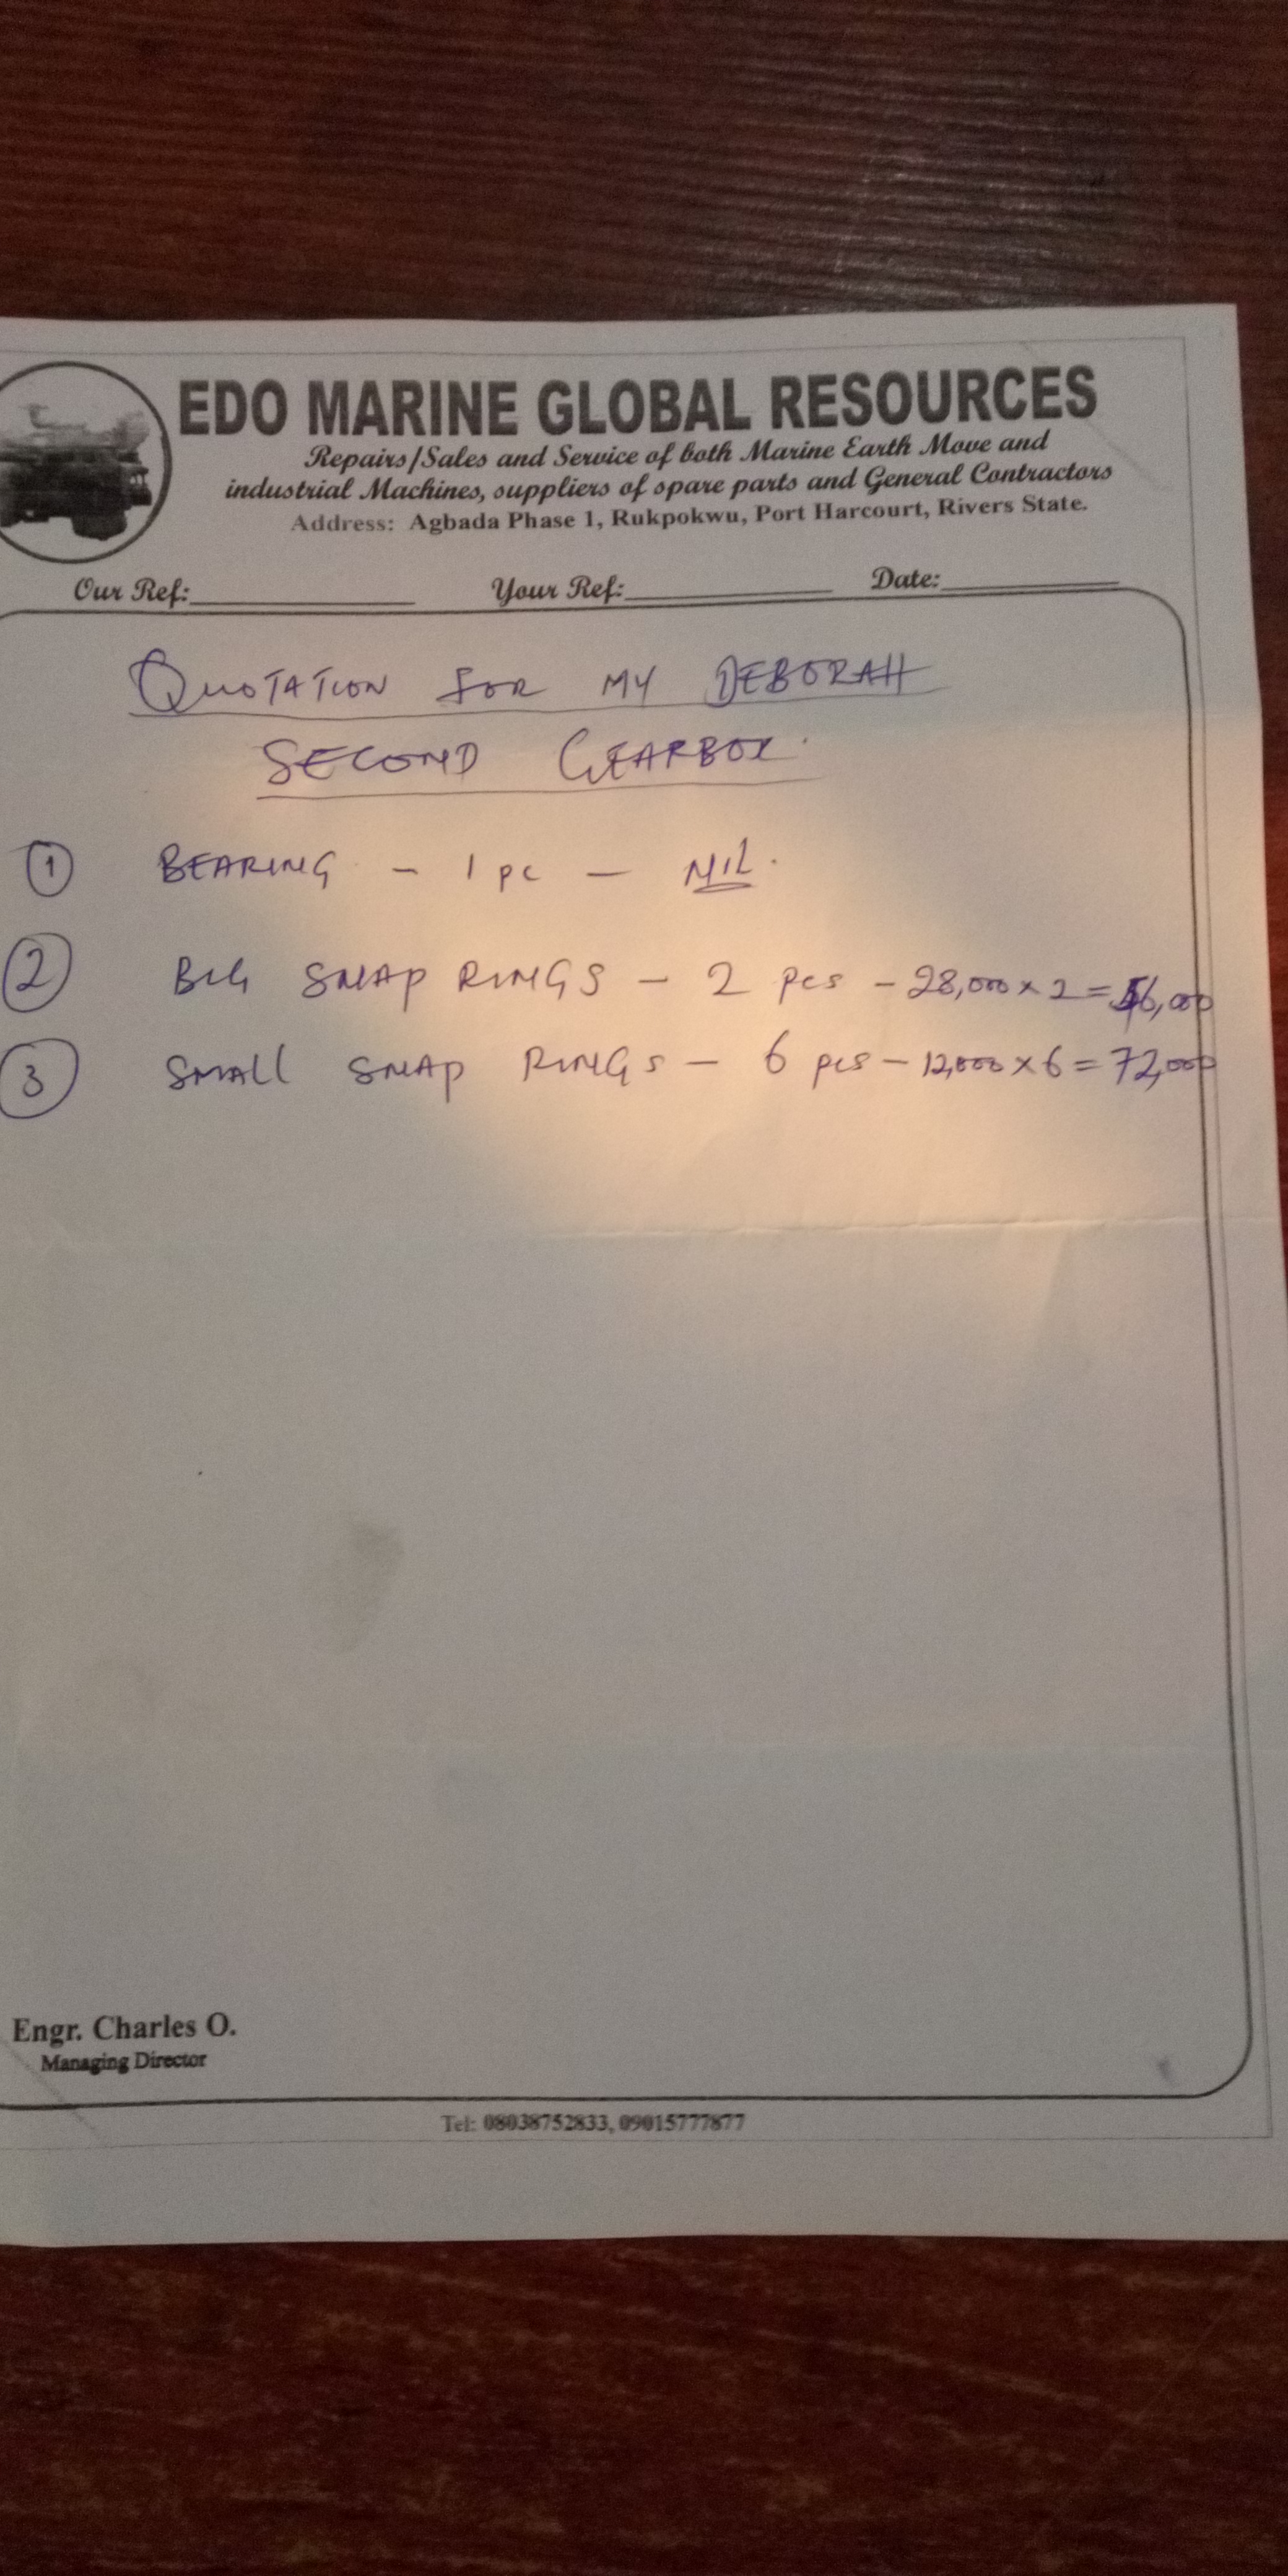 EDO MARINE GLOBAL RESOURCES
Repairs/Sales and Service of both Marine Earth Move and
industrial Machines, suppliers of spare parts and General Contractors
Address: Agbada Phase 1, Rukpokwu, Port Harcourt, Rivers State.
Our Ref: Your Ref: Date:
QUOTATION FOR MY DEBORAH
SECOND GEARBOX.
1 BEARING - 1 pc - NIL.
2 BIG SNAP RINGS - 2 pcs - 28,000 x 2 = 56,000
3 SMALL SNAP RINGS - 6 pcs - 12,000 x 6 = 72,000
Engr. Charles O.
Managing Director
Tel: 08038752833, 09015777877